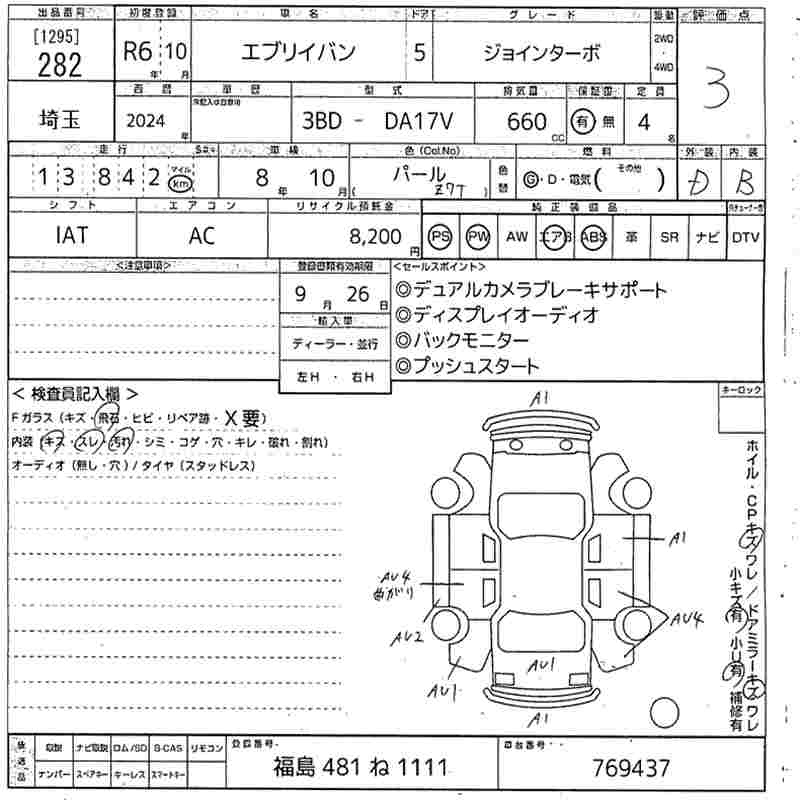 出品番号 初度登録 車名 ドア グレード 駆動 評価点
[1295]
282 R6年 10月 エブリイバン 5 ジョインターボ 2WD・4WD 3
西暦 車歴 型式 排気量 保証書 定員
埼玉 2024年 3BD - DA17V 660cc 有 無 4名
走行 車検 色(Col.No) 燃料 外装 内装
13842 マイル km 8年 10月 パール ( Z7T ) 色替 G・D・電気( その他 ) D B
シフト エアコン リサイクル預託金 純正装備品
IAT AC 8,200円 PS PW AW エアB ABS 革 SR ナビ DTV
<注意事項> 登録書類有効期限 <セールスポイント>
9月 26日 ◎デュアルカメラブレーキサポート
輸入車 ◎ディスプレイオーディオ
ディーラー・並行 ◎バックモニター
左H・右H ◎プッシュスタート
< 検査員記入欄 > キーロック
Fガラス (キズ・飛石・ヒビ・リペア跡・X要)
内装 (キズ・スレ・汚れ・シミ・コゲ・穴・キレ・破れ・割れ)
オーディオ (無し・穴) / タイヤ (スタッドレス)
A1
A1
AU4
曲がり
AU4
AU2
AU1
AU1
A1
ホイル・CPキズワレ / ドアミラーキズワレ
小キズ有 / 小U有 / 補修有
後送品 取説 ナビ取説 ロム/SD B-CAS リモコン 登録番号 車台番号
ナンバー スペアキー キーレス スマートキー 福島 481 ね 1111 769437